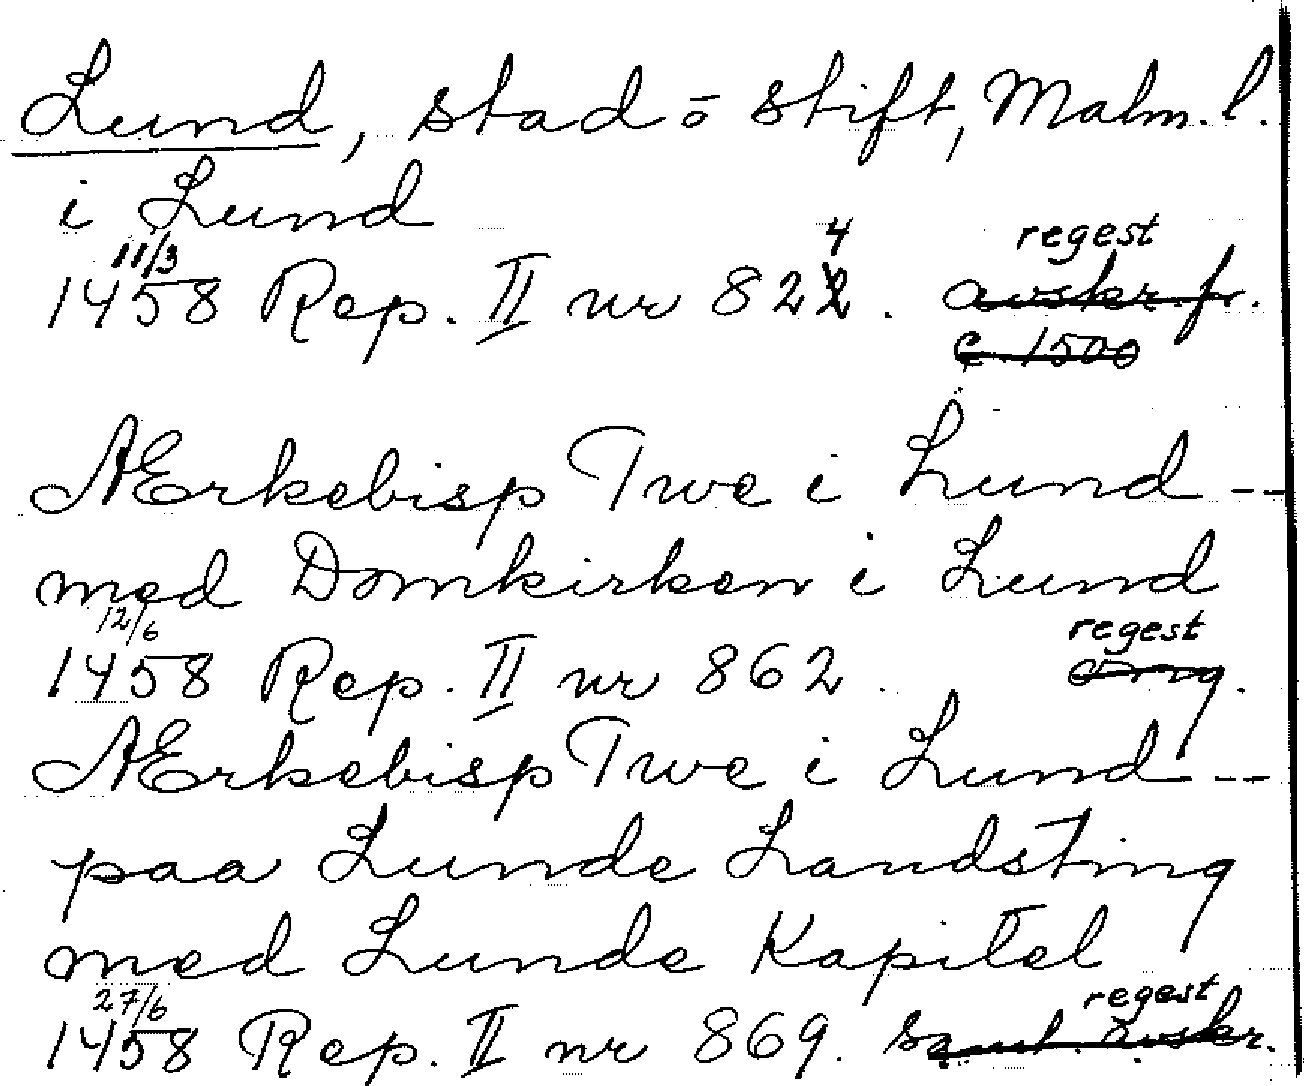 Lund, stad o stift, Malm. l.
i Lund
11/3 4 regest
1458 Rep. II nr 822. avskr. fr.
c. 1500
Ærkebisp Twe i Lund --
med Domkirken i Lund
12/6 regest
1458 Rep. II nr 862. Orig.
Ærkebisp Twe i Lund --
paa Lunde Landsting
med Lunde Kapitel
27/6 regest
1458 Rep. II nr 869. samt. avskr.